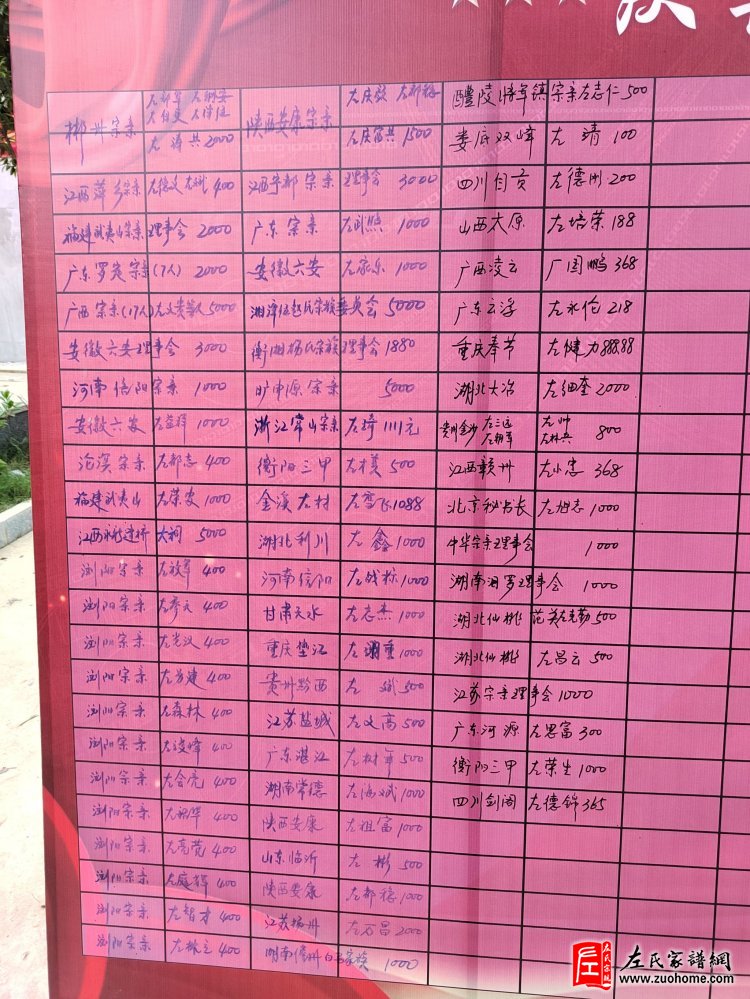 郴州宗亲
左涛共2000
江西萍乡宗亲 400
福建武夷山宗亲理事会 2000
广东罗定宗亲(7人) 2000
广西宗亲(17人) 5000
安徽六安理事会 3000
河南信阳宗亲 1000
安徽六安 左益辉 1000
沧溪宗亲 左都志 400
福建武夷山 左荣安 1000
大祠 5000
浏阳宗亲 400
浏阳宗亲 左彦文 400
浏阳宗亲 左光汉 400
浏阳宗亲 左芳建 400
浏阳宗亲 左森林 400
浏阳宗亲 左凌峰 400
浏阳宗亲 左会亮 400
浏阳宗亲 400
浏阳宗亲 400
浏阳宗亲 左庭辉 400
浏阳宗亲 左智才 400
浏阳宗亲 左林立 400
陕西安康宗亲
1500
江西宁都宗亲 理事会 3000
广东宗亲 1000
安徽六安 左家乐 1000
宗族委员会 5000
衡湘杨氏宗族理事会 1880
旷申源宗亲 5000
浙江常山宗亲 左琦 1111元
衡阳三甲 500
金溪左村 左雪飞 1088
湖北利川 左鑫 1000
河南信阳 左战标 1000
甘肃天水 左志杰 1000
重庆垫江 1000
贵州黔西 左斌 500
江苏盐城 左文高 500
广东湛江 左树年 500
湖南常德 左海斌 1000
陕西安康 左祖富 1000
山东临沂 左彬 500
陕西安康 左都德 1000
江苏扬州 左万昌 2000
湖南儋州 家族 1000
醴陵 镇宗亲左志仁 500
娄底双峰 左靖 100
四川自贡 左德刚 200
山西太原 左培荣 188
广西凌云 厂国鹏 368
广东云浮 左永伦 218
重庆奉节 左健力 888.88
湖北大冶 左细奎 2000
贵州金沙 800
江西赣州 左小忠 368
北京秘书长 左旭志 1000
中华宗亲理事会 1000
湖南汨罗理事会 1000
湖北仙桃 范关左克勤 500
湖北仙桃 左昌云 500
江苏宗亲理事会 1000
广东河源 左思富 300
衡阳三甲 左荣生 1000
四川剑阁 左德锦 365
左氏家谱
左氏家譜網
www.zuohome.com